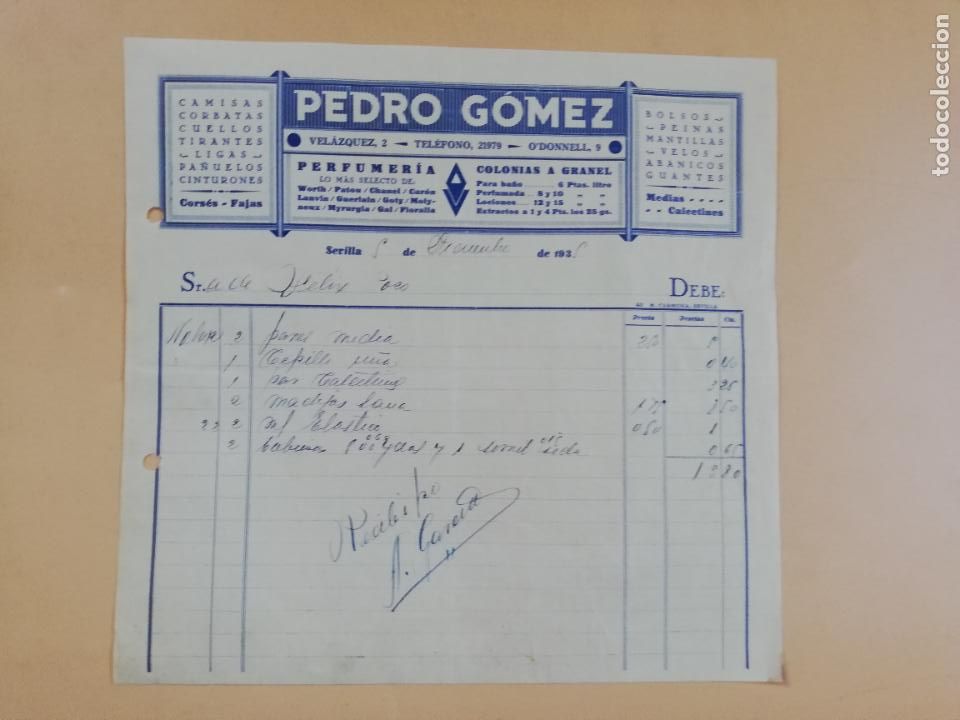 CAMISAS
CORBATAS
CUELLOS
TIRANTES
LIGAS
PAÑUELOS
CINTURONES
Corsés - Fajas
PEDRO GÓMEZ
VELÁZQUEZ, 2 — TELÉFONO, 21979 — O'DONNELL, 9
PERFUMERÍA
LO MÁS SELECTO DE:
Worth / Patou / Chanel / Carón
Lanvin / Guerlain / Goty / Moly-
neux / Myrurgia / Gal / Floralia
COLONIAS A GRANEL
Para baño ...... 6 Ptas. litro
Perfumada .. 8 y 10 " "
Lociones .... 12 y 15 " "
Extractos a 1 y 4 Pts. los 25 gs.
BOLSOS
PEINAS
MANTILLAS
VELOS
ABANICOS
GUANTES
Medias
Calcetines
Sevilla 5 de de 1935
Sr.a de Felix DEBE:
M. CARMONA, SEVILLA
Precio Pesetas Cts.
2 pares media
1 Cepillo uña 0 40
1 par Calcetines
2 madejas lana
22 2 Elastico 0 50 1
2 y 1 seda 0 65
Recibi
A. García
todocoleccion
todocoleccion.net